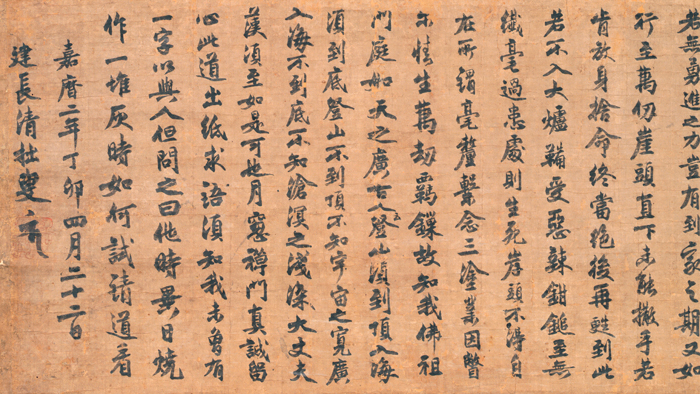 若無勇進之力豈有到家之期又如
行至萬仞崖頭直下未能撒手若
肯放身捨命終當絶後再甦到此
若不入大爐鞴受惡辣鉗鎚至無
纎毫過患處則生死岸頭不得自
在所謂毫釐繋念三塗業因瞥
尓情生萬劫羈鏁故知我佛祖
門庭如天之廣古人登山須到頂入海
須到底登山不到頂不知宇宙之寛廣
入海不到底不知滄溟之淺深大丈夫
漢須至如是可也月窓禪門真誠留
心此道出紙求語須知我未曽有
一字以與人但問之曰他時異日燒
作一堆灰時如何試請道看
嘉暦二年丁卯四月二十二日
建長清拙叟